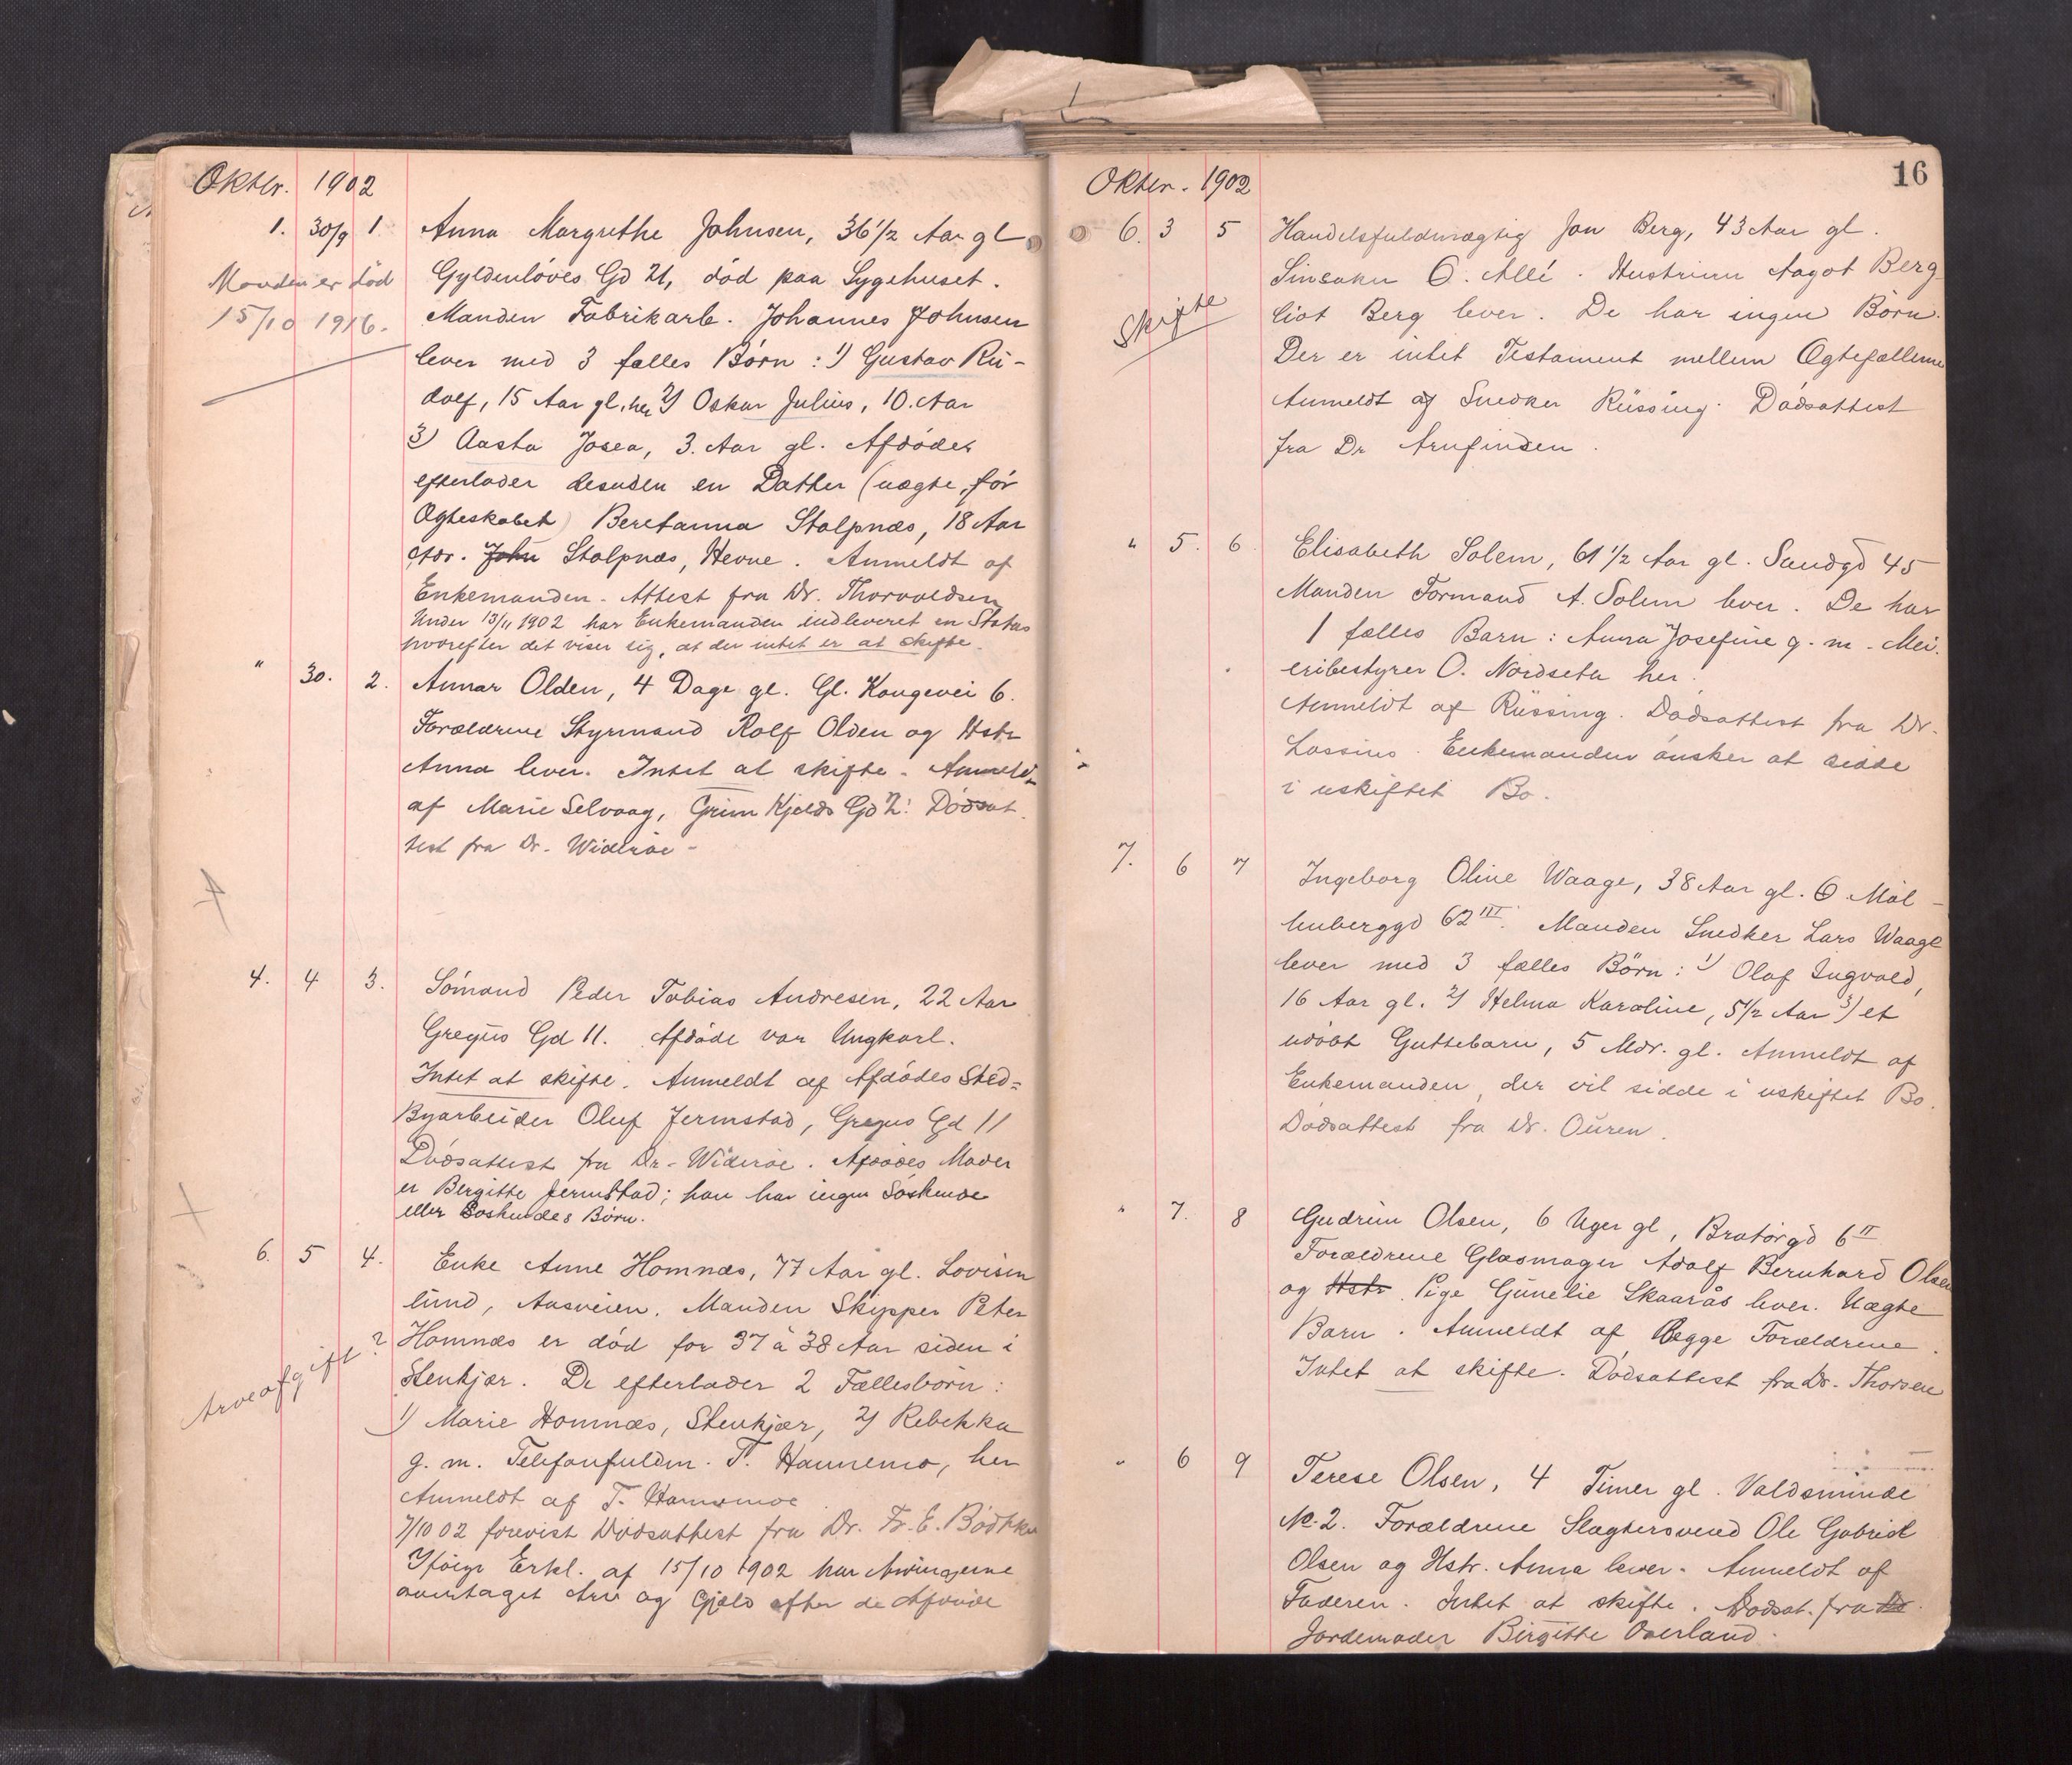 Oktbr. 1902
1. 30/9 1 Anna Margrethe Johnsen, 36 1/2 Aar gl
Manden er död
15/10 1916.
Gyldenlöves Gd 21, död paa Sygehuset.
Manden Fabrikarb. Johannes Johnsen
lever med 3 fælles Börn: 1) Gustav Ru-
dolf, 15 Aar gl. her 2) Oskar Julius, 10. Aar
3) Aasta Josea, 3. Aar gl. Afdödes
efterlader desuden en Datter (uægte, för
Ægteskabet) Beretanna Stolpnæs, 18 Aar
Adr. John Stolpnæs, Hevne. Anmeldt af
Enkemanden. Attest fra Dr. Thorvaldsen
Under 13/11 1902 har Enkemanden indleveret en Status
hvorefter det viser sig, at der intet er at skifte.
" 30. 2. Annar Olden, 4 Dage gl. Gl. Kongevei 6.
Forældrene Styrmand Rolf Olden og Hstr
Anna lever. Intet at skifte. Anmeldt
af Marie Selvaag, Grim Kjelds Gd 2. Dödsat
test fra Dr. Wideröe -
4. 4 3. Sömand Peder Tobias Andresen, 22 Aar
Gregus Gd 11. Afdöde var Ungkarl.
Intet at skifte. Anmeldt af Afdödes Sted=
Byarbeider Oluf Jermstad, Gregus Gd 11
Dödsattest fra Dr. Wideröe. Afdödes Moder
er Bergitte Jermstad; han har ingen Söskende
eller Söskendes Börn.
6. 5 4. Enke Anne Homnæs, 77 Aar gl. Lovisen
lund, Aasveien. Manden Skipper Peter
Arveafgift?
Homnæs er död for 37 à 38 Aar siden i
Stenkjær. De efterlader 2 Fællesbörn:
1) Marie Homnæs, Stenkjær, 2) Rebekka
g. m. Telefonfuldm. T. Hannemo, her
Anmeldt af T. Hannemoe
7/10 02 forevist Dödsattest fra Dr. Fr. E. Bödtker
Ifölge Erkl. af 15/10 1902 har Arvingerne
overtaget Arv og Gjæld efter de Afdöde
16
Oktbr. 1902
6. 3 5 Handelsfuldmægtig Jon Berg, 43 Aar gl.
Skifte
Sinsaker Ö. Allé. Hustruen Aagot Berg-
liot Berg lever. De har ingen Börn.
Der er intet Testament mellem Ægtefællerne
Anmeldt af Snedker Rüssing. Dödsattest
fra Dr Arnfinsen.
" 5. 6. Elisabeth Solem, 61 1/2 Aar gl. Sandgd 45
Manden Formand A. Solem lever. De har
1 fælles Barn: Anna Josefine g. m. Mei.
eribestyrer O. Nordseter her.
Anmeldt af Rüssing. Dödsattest fra Dr.
Lossius. Enkemanden önsker at sidde
i uskiftet Bo.
7. 6 7 Ingeborg Oline Waage, 38 Aar gl. Ö. Möl-
lenberggd 62 III. Manden Snedker Lars Waage
lever med 3 fælles Börn: 1) Olaf Ingvald,
16 Aar gl. 2) Helma Karoline, 5 1/2 Aar 3) et
udöbt Guttebarn, 5 Mdr. gl. Anmeldt af
Enkemanden, der vil sidde i uskiftet Bo.
Dödsattest fra Dr. Ouren.
" 7. 8 Gudrun Olsen, 6 Uger gl, Bratörgd 6 II
Forældrene Glasmager Adolf Bernhard Olsen
og Hstr. Pige Gunelie Skaarås lever. Uægte
Barn. Anmeldt af Begge Forældrene.
Intet at skifte. Dödsattest fra Dr. Thorsen
" 6 9 Terese Olsen, 4 Timer gl. Valdsminde
No. 2. Forældrene Slagtersvend Ole Gabriel
Olsen og Hstr. Anna lever. Anmeldt af
Faderen. Intet at skifte. Dödsat. fra Dr
Jordemoder Birgitte Overland.